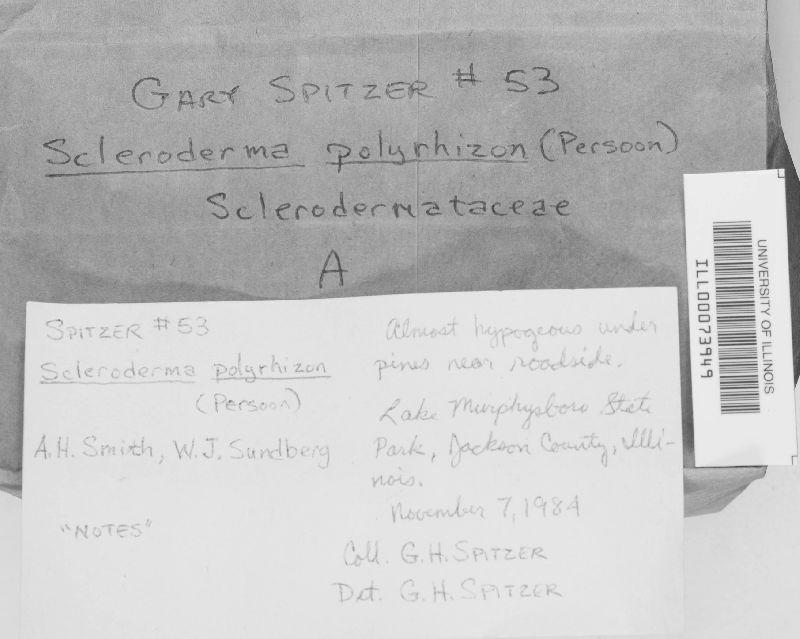 GARY SPITZER # 53
Scleroderma polyrhizon (Persoon)
Sclerodermataceae
A
SPITZER #53
Scleroderma polyrhizon
(Persoon)
A.H. Smith, W.J. Sundberg
"NOTES"
Almost hypogeous under
pines near roadside.
Lake Murphysboro State
Park, Jackson County, Illi-
nois.
November 7, 1984
Coll. G.H. SPITZER
Det. G.H. SPITZER
UNIVERSITY OF ILLINOIS
ILL00073949